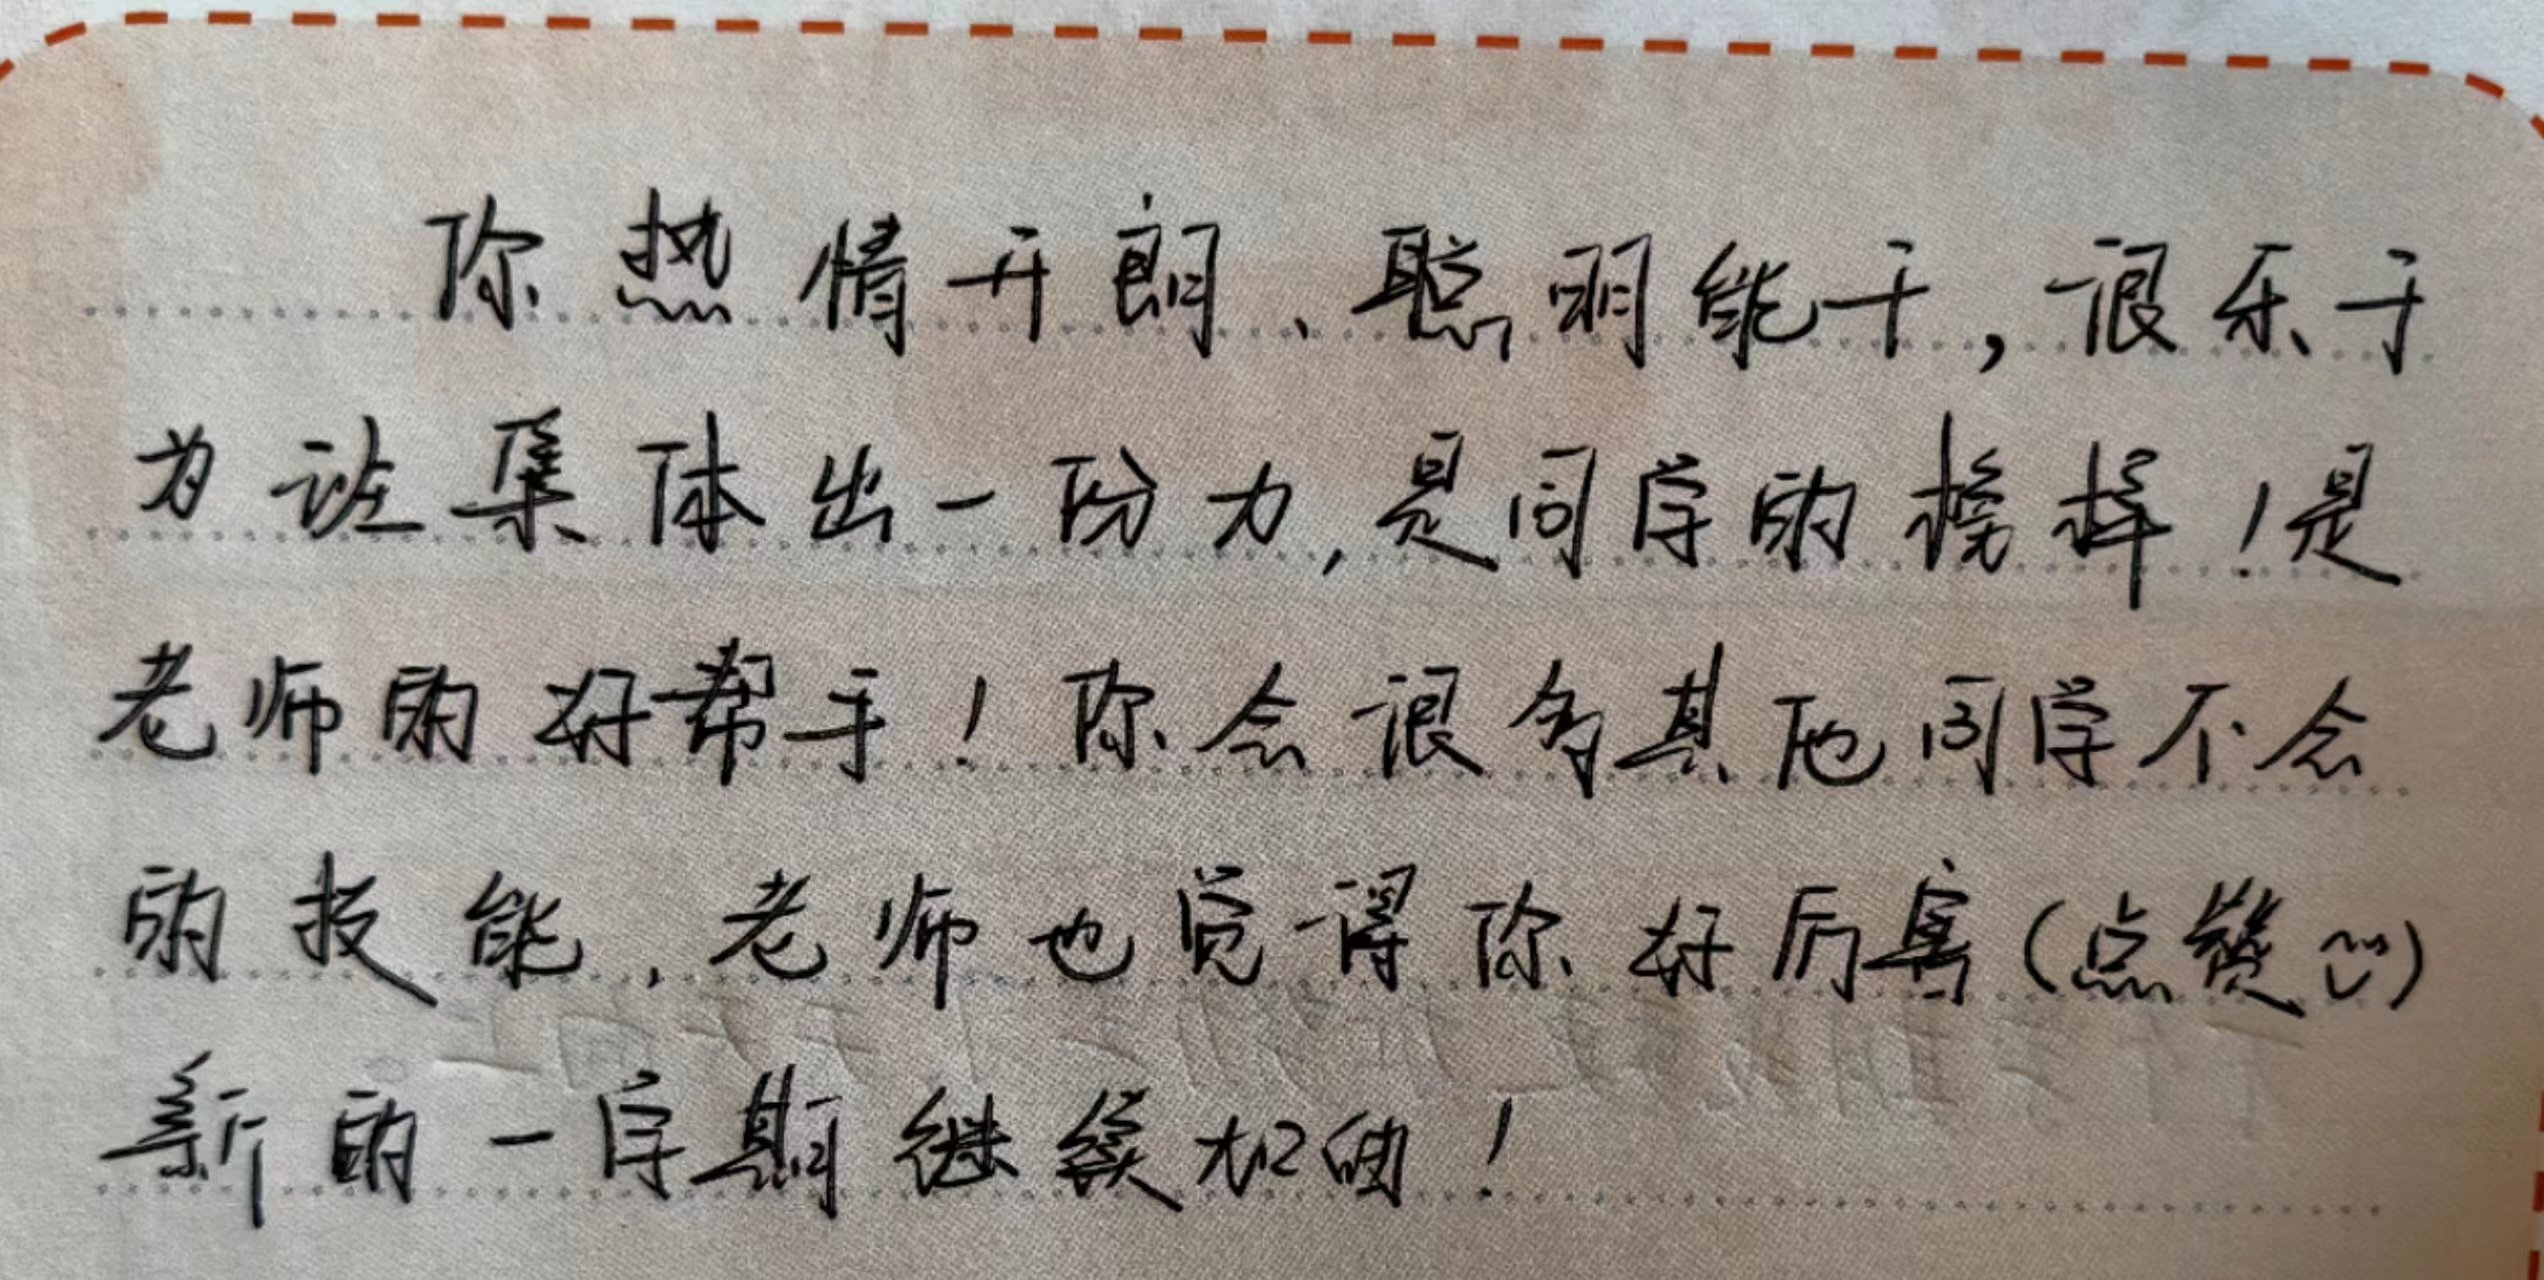 你热情开朗、聪明能干，很乐于
为班集体出一份力，是同学的榜样！是
老师的好帮手！你会很多其他同学不会
的技能，老师也觉得你好厉害（点赞）
新的一学期继续加油！